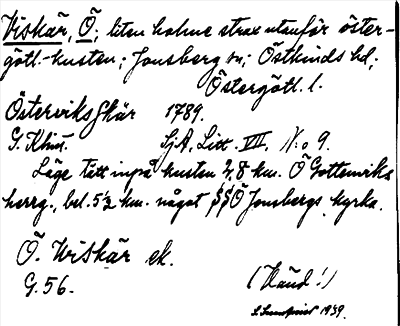 Viskär, Ö.; liten holme strax utanför öster-
götl.-kusten; Jonsberg sn; Östkinds hd;
Östergötl. l.
Österviks Skär 1789.
G. Khn. SjA, Litt. VII, N:o 9.
Läge tätt inpå kusten 2,8 km. Ö Gottenviks
herrg., bel. 5½ km. något SSÖ Jonsbergs kyrka.
Ö. Wiskär ek.
G. 56. (Händ!)
1939.